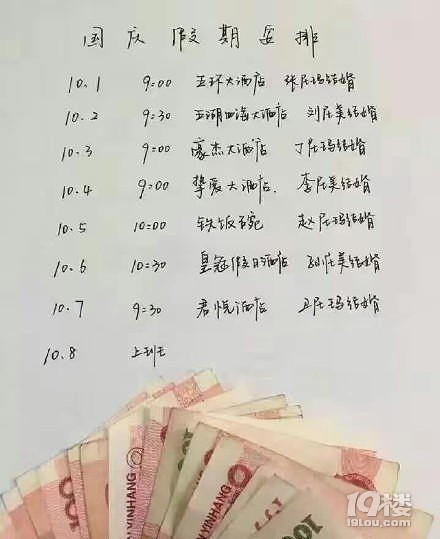 国庆假期安排
10.1 9:00 五环大酒店 张应玛结婚
10.2 9:30 五湖四海大酒店 刘应美结婚
10.3 9:00 豪杰大酒店 丁应玛结婚
10.4 9:00 挚爱大酒店 李应美结婚
10.5 10:00 铁饭碗 赵应玛结婚
10.6 10:30 皇冠假日酒店 应美结婚
10.7 9:30 君悦酒店 卫应玛结婚
10.8 上班
100
YINHANG
YINHANG
100
19楼
19lou.com